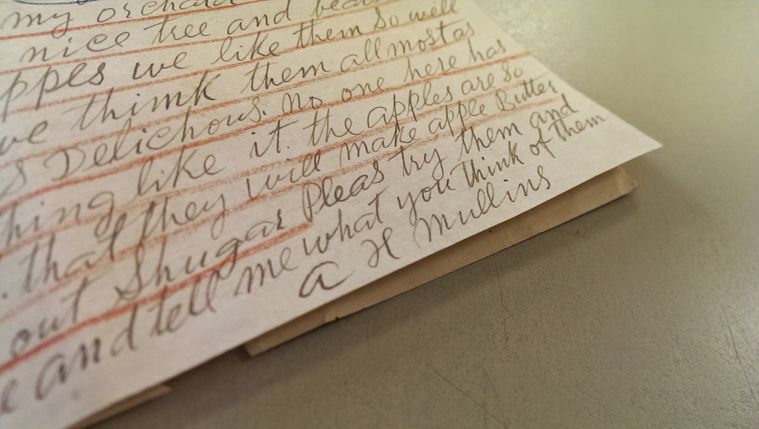 my orchard
nice tree and
we like them so well
we thimk them allmost as
Delichous. no one here has
like it. the apples are so
that they will make apple Butter
out Shugar Pleas try them and
and tell me what you think of them
a H Mullins